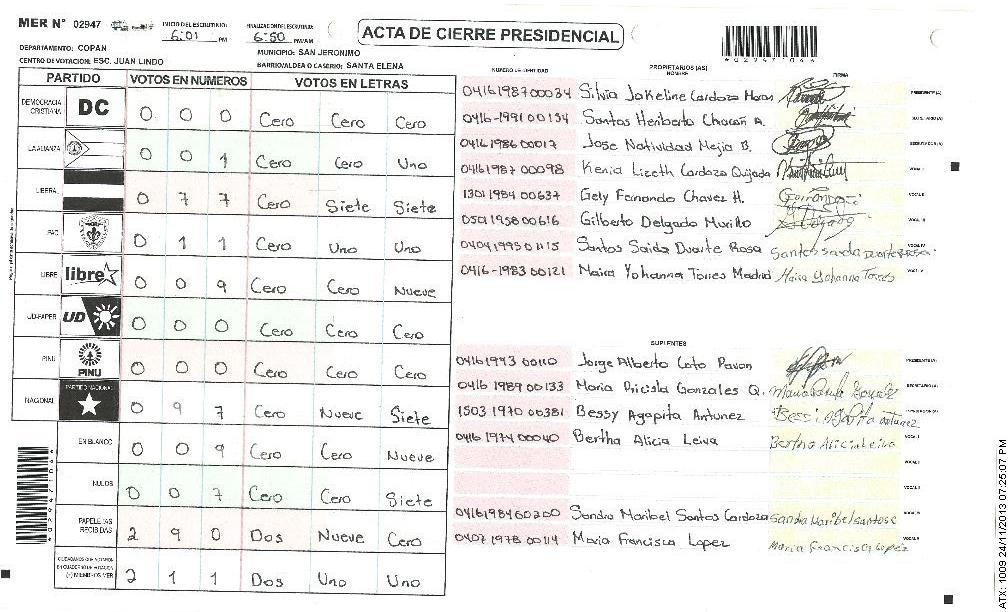 MER N° 02947
INICIO DEL ESCRUTINIO: 6:01 PM
FINALIZACION DEL ESCRUTINIO: 6:50 PM/AM
ACTA DE CIERRE PRESIDENCIAL
DEPARTAMENTO: COPAN
MUNICIPIO: SAN JERONIMO
CENTRO DE VOTACION: ESC. JUAN LINDO
BARRIO/ALDEA O CASERIO: SANTA ELENA
PARTIDO VOTOS EN NUMEROS VOTOS EN LETRAS
DEMOCRACIA CRISTIANA DC 0 0 0 Cero Cero Cero
LA ALIANZA 0 0 1 Cero Cero Uno
LIBERAL 0 7 7 Cero Siete Siete
PAC 0 1 1 Cero Uno Uno
LIBRE libre 0 0 9 Cero Cero Nueve
UD-FAPER UD 0 0 0 Cero Cero Cero
PINU PINU 0 0 0 Cero Cero Cero
NACIONAL PARTIDO NACIONAL 0 9 7 Cero Nueve Siete
EN BLANCO 0 0 9 Cero Cero Nueve
NULOS 0 0 7 Cero Cero Siete
PAPELETAS RECIBIDAS 2 9 0 Dos Nueve Cero
CIUDADANOS QUE VOTARON EN CUADERNO DE VOTACION (+) MIEMBROS MER 2 1 1 Dos Uno Uno
NUMERO DE IDENTIDAD PROPIETARIOS (AS) NOMBRE FIRMA
0416198700034 Silvia Jakeline Cardoza PRESIDENTE (A)
0416-1991 00134 Santos Heriberto Chacón A. SECRETARIO (A)
0416 1986 00017 Jose Natividad Mejia B. ESCRUTADOR (A)
0416 1987 00098 Kenia Lizeth Cardoza Quijada VOCAL I
1301 1984 00637 Gely Fernando Chavez H. VOCAL II
0501 1958 00616 Gilberto Delgado Murillo VOCAL III
0404 1995 01115 Santos Saida Duarte Rosa Santos saida Duarte Rosa VOCAL IV
0416-1983 00121 Maira Yohanna Torres Madrid Maira Yohanna Torres VOCAL V
SUPLENTES
Jorge Alberto Coto Pavon PRESIDENTE (A)
0416 1989 00133 Maria Pricisla Gonzales Q. SECRETARIO (A)
1503 1970 00381 Bessy Agapita Antunez ESCRUTADOR (A)
0416 1974 00040 Bertha Alicia Leiva Bertha Alicia Leiva VOCAL I
VOCAL II
VOCAL III
Sandra Maribel Santos Cardoza Sandra Maribel santos c VOCAL IV
0407 1978 00114 Maria Francisca Lopez Maria Francisca Lopez VOCAL V
ATX: 1009 24/11/2013 07:25:07 PM